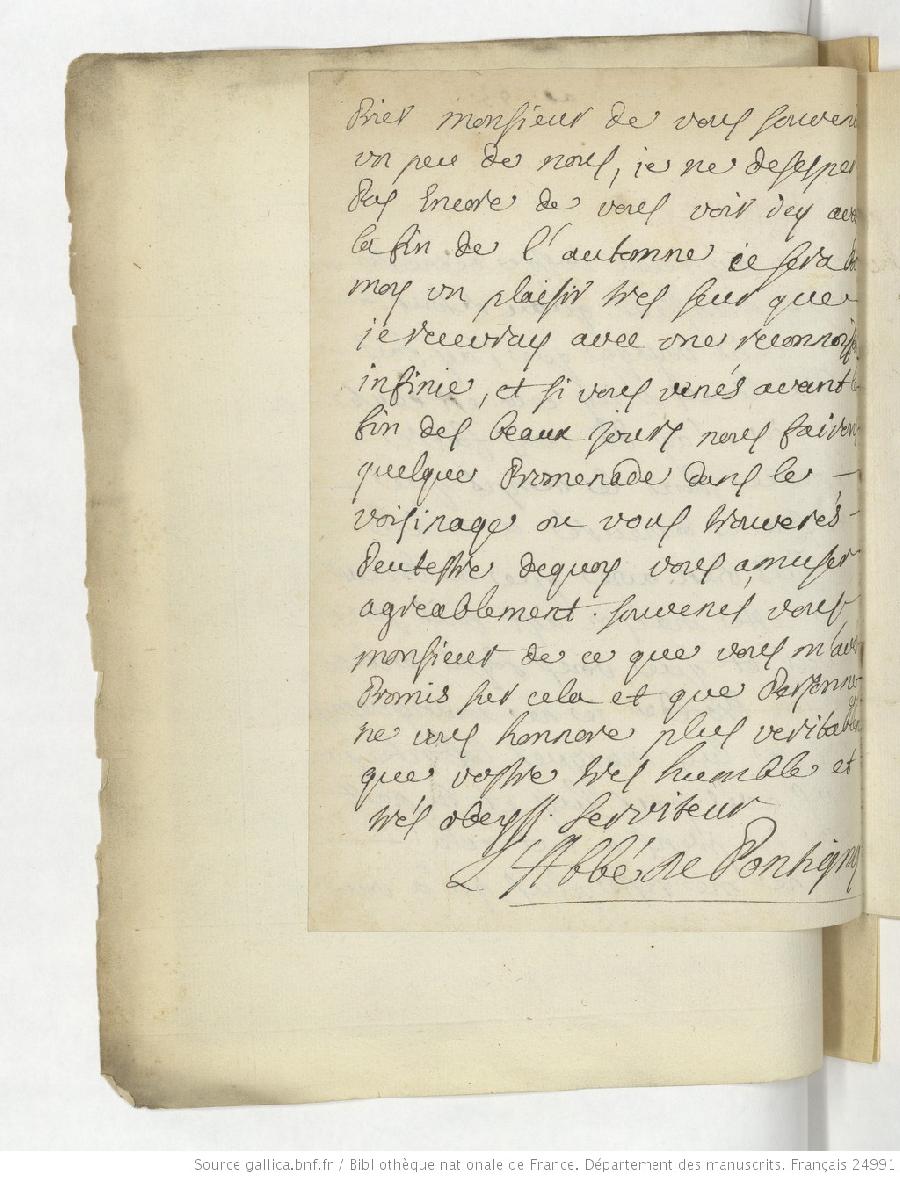 Prier monsieur de vous souveni
un peu de nous, je ne desesper
Pas Encore de vous voir icy ava
la fin de l'automne ce sera
moy un plaisir tres seur que
je recevray avec une reconnoiss
infinie, et si vous venés avant l
fin des beaux jours nous fairon
quelque Promenade dans le
voisinage ou vous trouverés
Peutestre dequoy vous amuser
agreablement. souvenés vous
monsieur de ce que vous m'avé
Promis sur cela et que Personne
ne vous honnore plus veritable
que vostre tres humble et
trés obeyss. serviteur
L'Abbé de Pontigny
Source gallica.bnf.fr / Bibliothèque nationale de France. Département des manuscrits. Français 24991